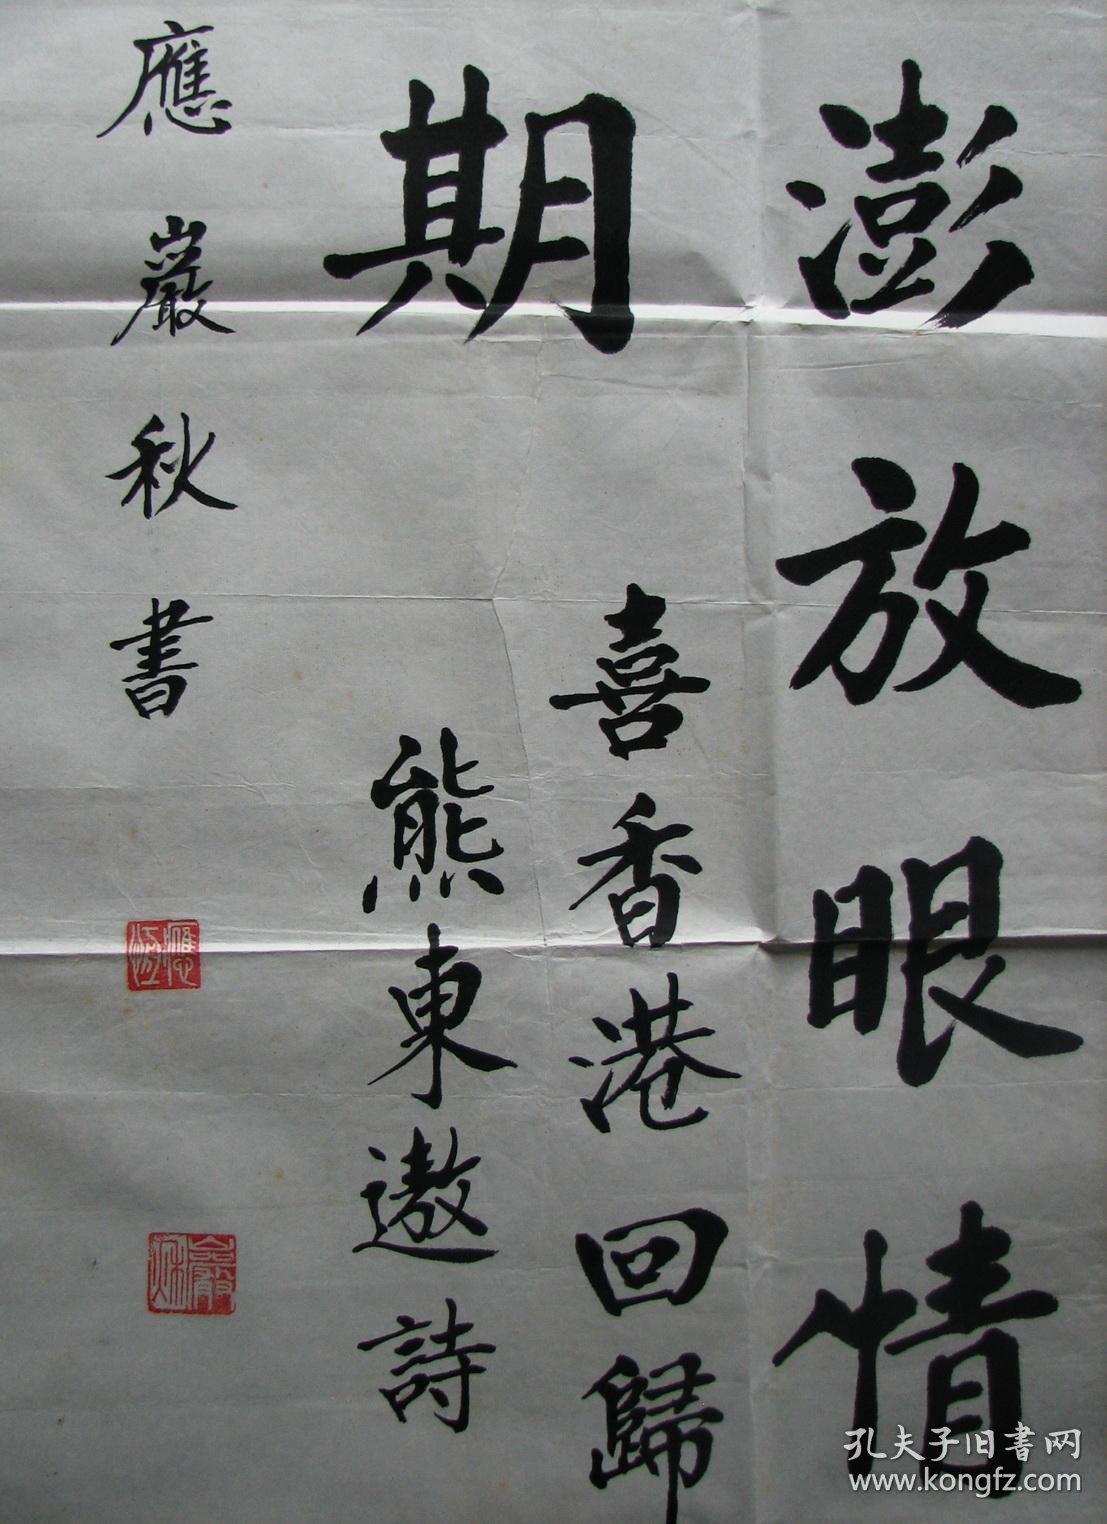 澎放眼情
期
喜香港回歸
熊東遨詩
應巖秋書
孔夫子旧书网
www.kongfz.com